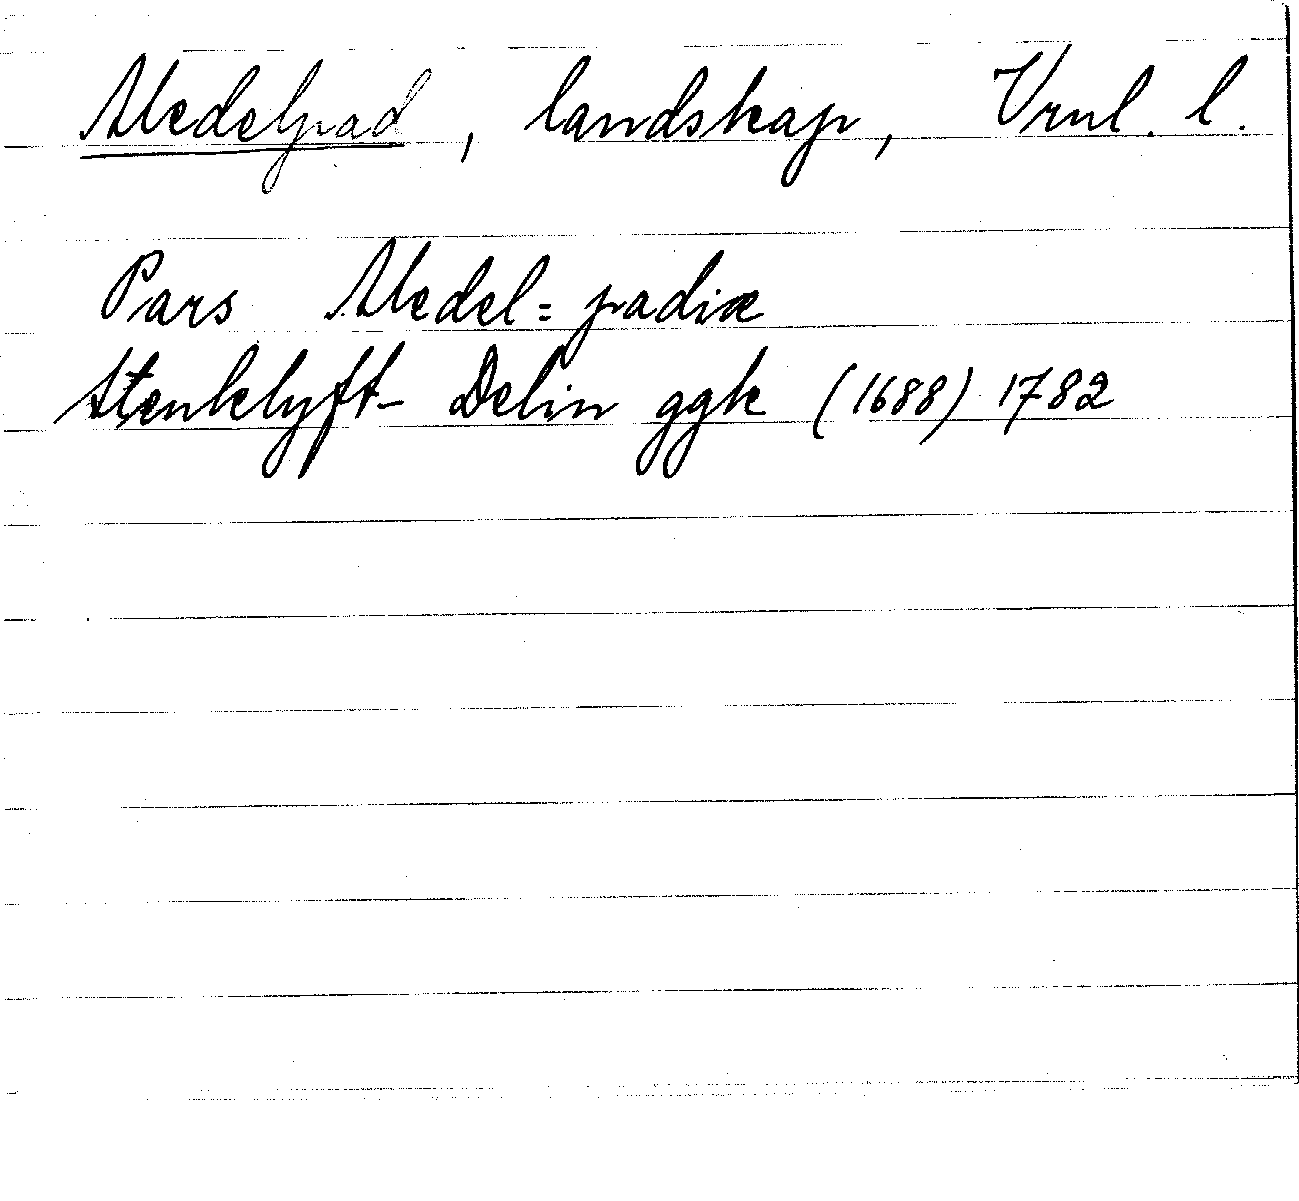 Medelpad, landskap, Vrnl. l.
Pars Medel=padiæ
Stenklyft- Delin ggk (1688) 1782